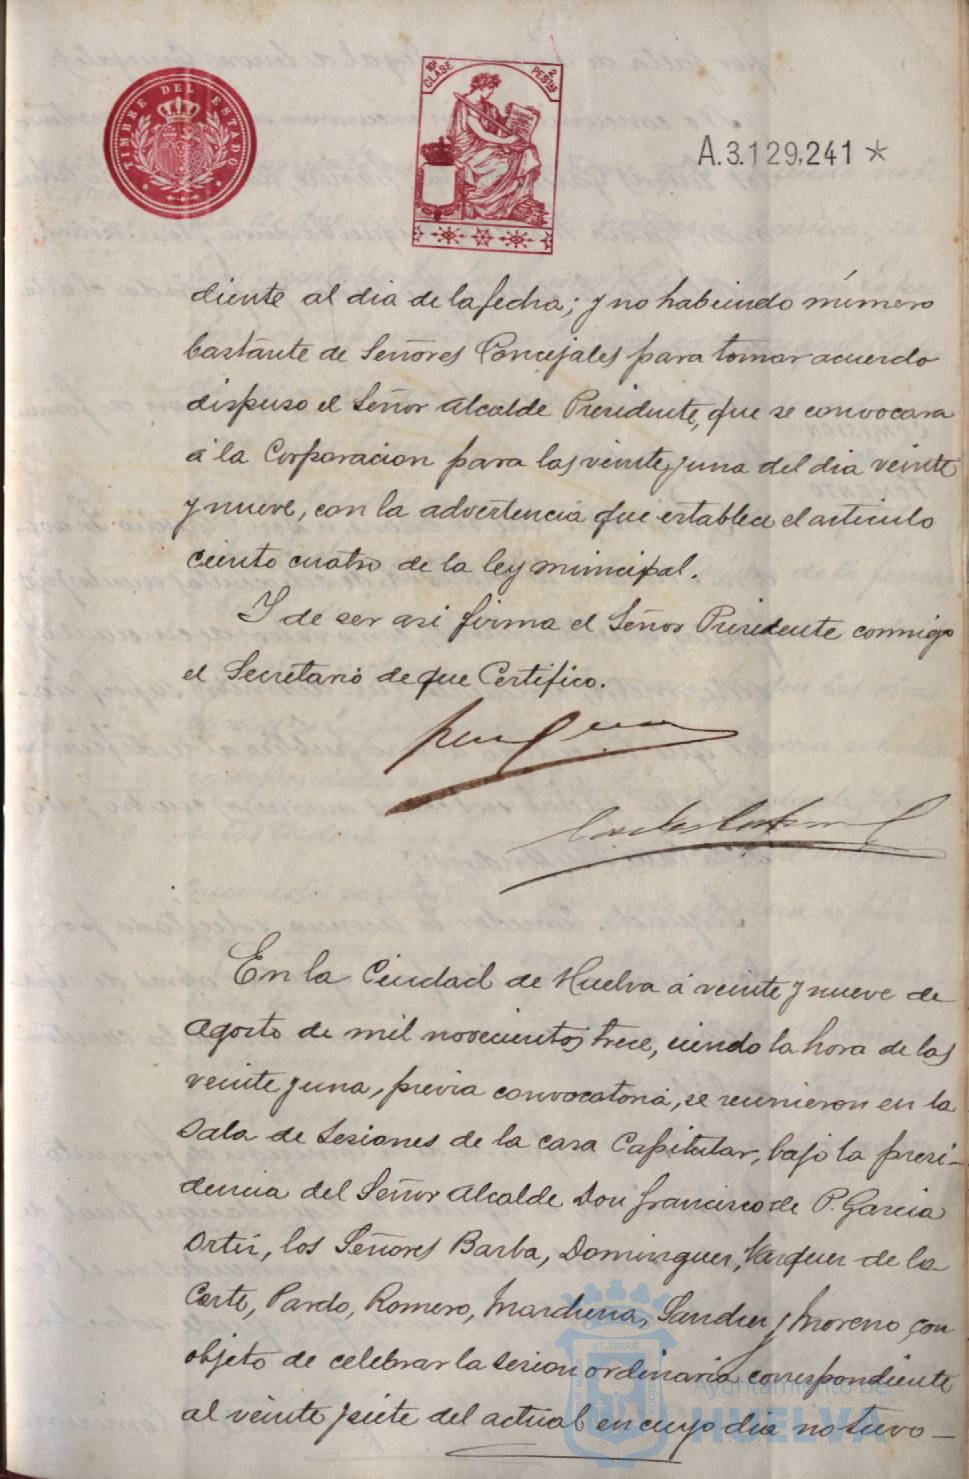 TIMBRE DEL ESTADO
10ª CLASE 2 PESTAS
A.3.129,241 *
diente al dia de la fecha; y no habiendo número
bastante de Señores Concejales para tomar acuerdo
dispuso el Señor Alcalde Presidente, que se convocara
á la Corporacion para las veinte y una del dia veinte
y nueve, con la advertencia que establece el articulo
ciento cuatro de la ley municipal.
Y de ser asi firma el Señor Presidente conmigo
el Secretario de que Certifico.
En la Ciudad de Huelva á veinte y nueve de
Agosto de mil novecientos trece, siendo la hora de las
veinte y una, previa convocatoria, se reunieron en la
Sala de Sesiones de la casa Capitular, bajo la presi-
dencia del Señor Alcalde Don Francisco de P. Garcia
Ortiz, los Señores Barba, Dominguez, Vazquez de la
Corte, Pardo, Romero, Marchena, Sanchez y Moreno, con
objeto de celebrar la sesion ordinaria correspondiente
al veinte y siete del actual en cuyo dia no tuvo—
Ayuntamiento de
HUELVA